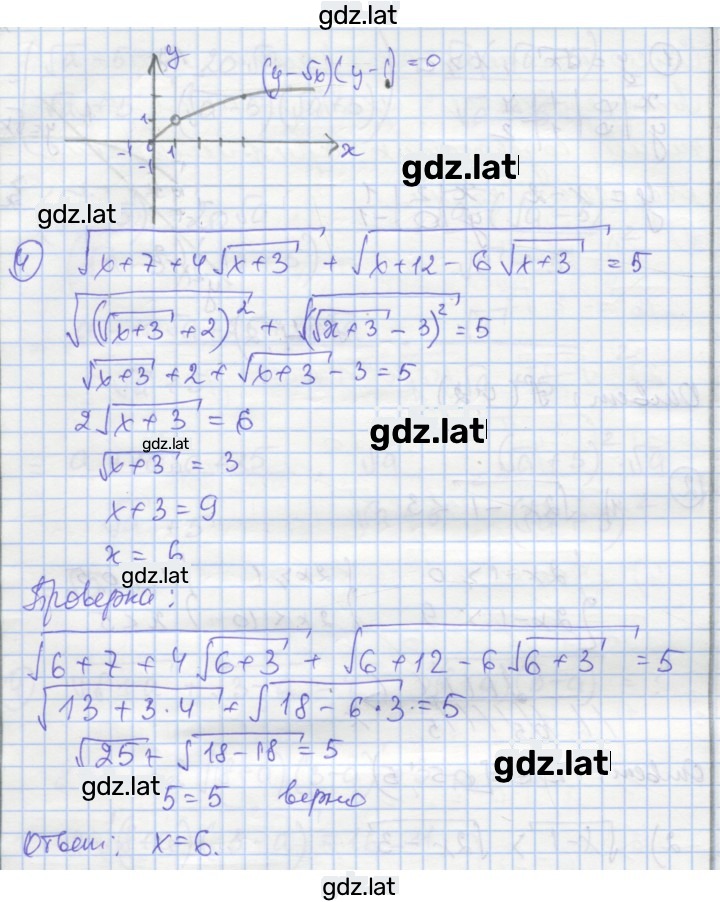 gdz.lat
y
(y-√x)(y-1) = 0
1
-1 0 1 x
-1
gdz.lat
gdz.lat
4) √(x+7+4√(x+3)) + √(x+12-6√(x+3)) = 5
√((√(x+3)+2)²) + √((√(x+3)-3)²) = 5
√(x+3) + 2 + √(x+3) - 3 = 5
2√(x+3) = 6
gdz.lat
gdz.lat
√(x+3) = 3
x+3 = 9
x = 6
gdz.lat
Проверка:
√(6+7+4√(6+3)) + √(6+12-6√(6+3)) = 5
√(13+3·4) + √(18-6·3) = 5
√25 + √(18-18) = 5
gdz.lat
gdz.lat
5 = 5 верно
Ответ: x=6.
gdz.lat